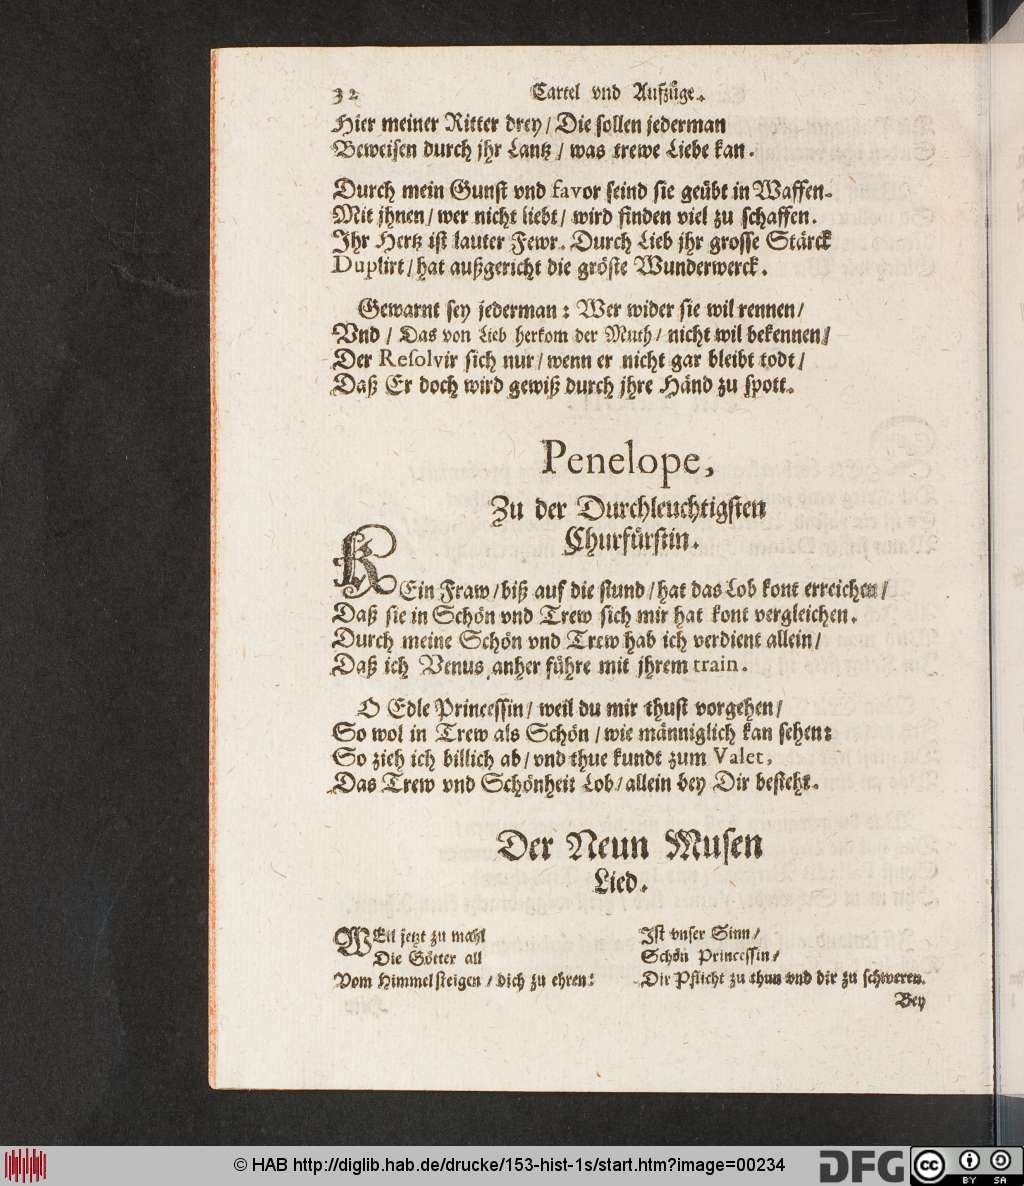 32 Cartel vnd Aufzüge.
Hier meiner Ritter drey / Die sollen jederman
Beweisen durch jhr Lantz / was trewe Liebe kan.
Durch mein Gunst vnd favor seind sie geübt in Waffen.
Mit jhnen / wer nicht liebt / wird finden viel zu schaffen.
Ihr Hertz ist lauter Fewr. Durch Lieb jhr grosse Stärck
Duplirt / hat außgericht die gröste Wunderwerck.
Gewarnt sey jederman: Wer wider sie wil rennen /
Vnd / Das von Lieb herkom der Muth / nicht wil bekennen /
Der Resolvir sich nur / wenn er nicht gar bleibt todt /
Daß Er doch wird gewiß durch jhre Händ zu spott.
Penelope,
Zu der Durchleuchtigsten
Churfürstin.
KEin Fraw / biß auf die stund / hat das Lob kont erreichen /
Daß sie in Schön vnd Trew sich mir hat kont vergleichen.
Durch meine Schön vnd Trew hab ich verdient allein /
Daß ich Venus anher führe mit jhrem train.
O Edle Princessin / weil du mir thust vorgehen /
So wol in Trew als Schön / wie männiglich kan sehen:
So zieh ich billich ab / vnd thue kundt zum Valet,
Das Trew vnd Schönheit Lob / allein bey Dir besteht.
Der Neun Musen
Lied.
WEil jetzt zu mahl
Die Götter all
Vom Himmel steigen / dich zu ehren:
Ist vnser Sinn /
Schön Princessin /
Dir Pflicht zu thun vnd dir zu schweren.
Bey
© HAB http://diglib.hab.de/drucke/153-hist-1s/start.htm?image=00234
DFG
cc BY SA